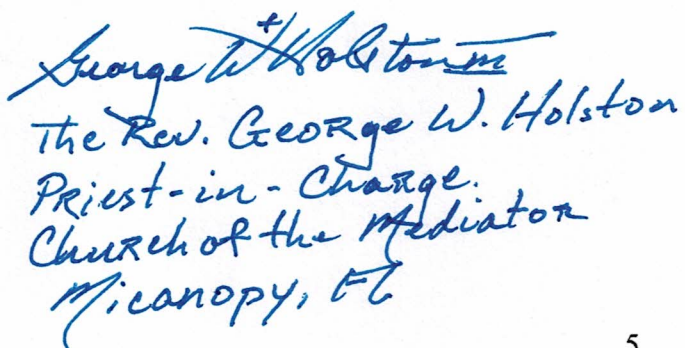 George W + Holston III
The Rev. George W. Holston
Priest-in-Charge.
Church of the Mediator
Micanopy, FL
5